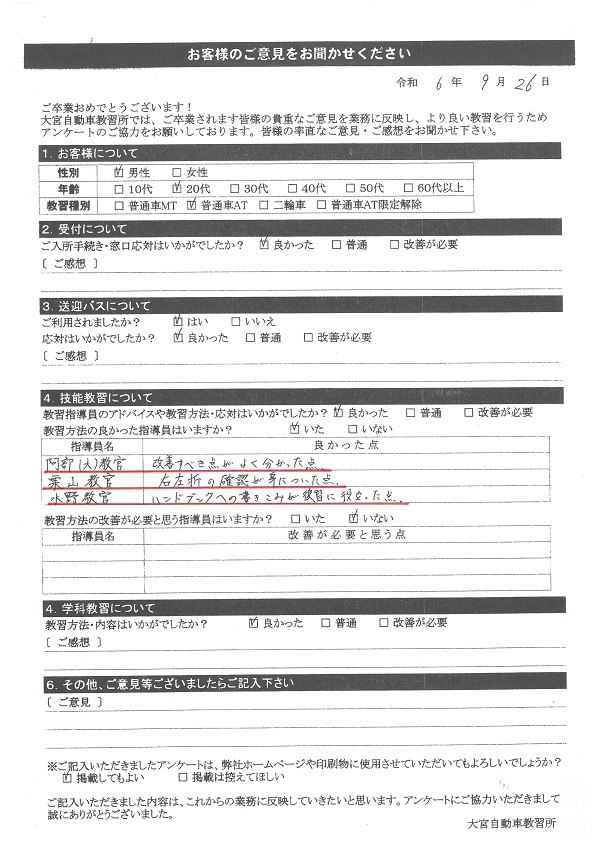 お客様のご意見をお聞かせください
令和 6 年 9 月 26 日
ご卒業おめでとうございます！
大宮自動車教習所では、ご卒業されます皆様の貴重なご意見を業務に反映し、より良い教習を行うため
アンケートのご協力をお願いしております。皆様の率直なご意見・ご感想をお聞かせ下さい。
1. お客様について
性別 ☑男性 □女性
年齢 □10代 ☑20代 □30代 □40代 □50代 □60代以上
教習種別 □普通車MT ☑普通車AT □二輪車 □普通車AT限定解除
2. 受付について
ご入所手続き・窓口応対はいかがでしたか？ ☑良かった □普通 □改善が必要
〔 ご感想 〕
3. 送迎バスについて
ご利用されましたか？ ☑はい □いいえ
応対はいかがでしたか？ ☑良かった □普通 □改善が必要
〔 ご感想 〕
4. 技能教習について
教習指導員のアドバイスや教習方法・応対はいかがでしたか？ ☑良かった □普通 □改善が必要
教習方法の良かった指導員はいますか？ ☑いた □いない
指導員名 良かった点
阿部(大)教官 改善すべき点がよく分かった点。
栗山教官 右左折の確認が身についた点。
水野教官 ハンドブックへの書きこみが復習に役立った点。
教習方法の改善が必要と思う指導員はいますか？ □いた ☑いない
指導員名 改善が必要と思う点
4. 学科教習について
教習方法・内容はいかがでしたか？ ☑良かった □普通 □改善が必要
〔 ご感想 〕
6. その他、ご意見等ございましたらご記入下さい
〔 ご意見 〕
※ご記入いただきましたアンケートは、弊社ホームページや印刷物に使用させていただいてもよろしいでしょうか？
☑掲載してもよい □掲載は控えてほしい
ご記入いただきました内容は、これからの業務に反映していきたいと思います。アンケートにご協力いただきまして
誠にありがとうございました。
大宮自動車教習所